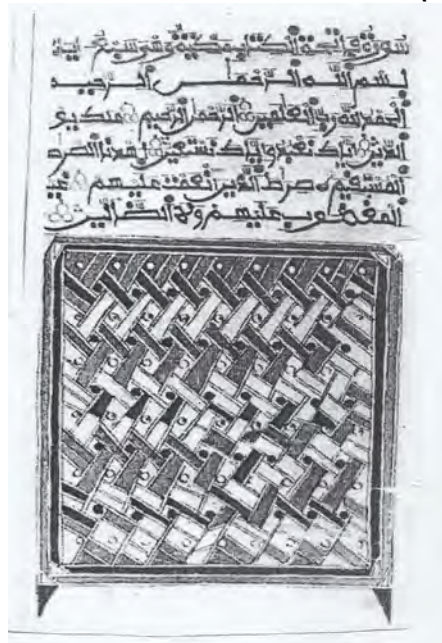 سورة فاتحة الكتاب مكية وهي سبع ايات
بسم الله الرحمن الرحيم
الحمد لله رب العلمين الرحمن الرحيم ملك يوم
الدين إياك نعبد وإياك نستعين اهدنا الصرط
المستقيم صرط الذين أنعمت عليهم غير
المغضوب عليهم ولا الضالين